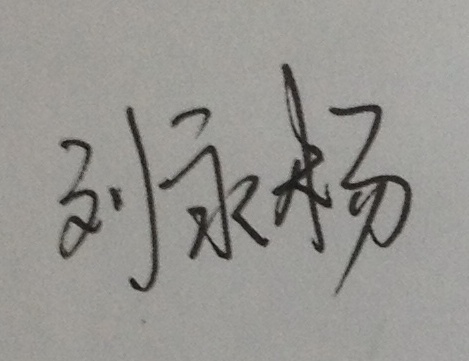 刘永杨